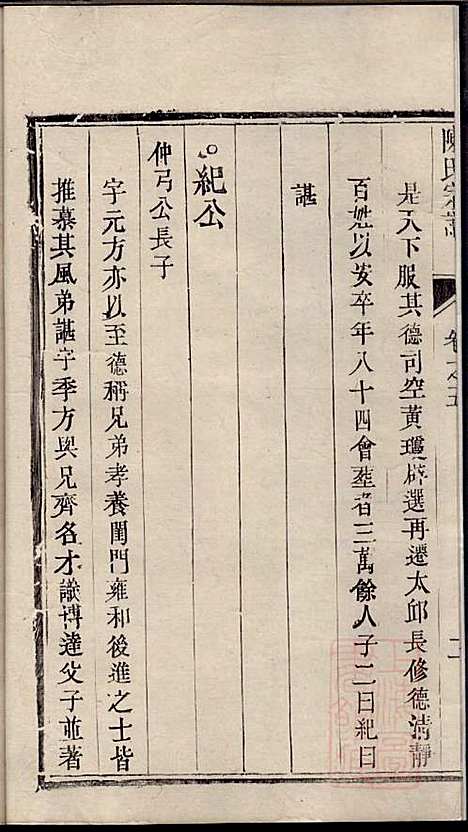 陳氏宗譜
卷一之五
二
是天下服其德司空黃瓊辟選再遷太邱長修德清靜
百姓以安卒年八十四會塟者三萬餘人子二曰紀曰
諶
紀公
仲弓公長子
字元方亦以至德稱兄弟孝養閨門雍和後進之士皆
推慕其風弟諶字季方與兄齊名才識博達父子並著